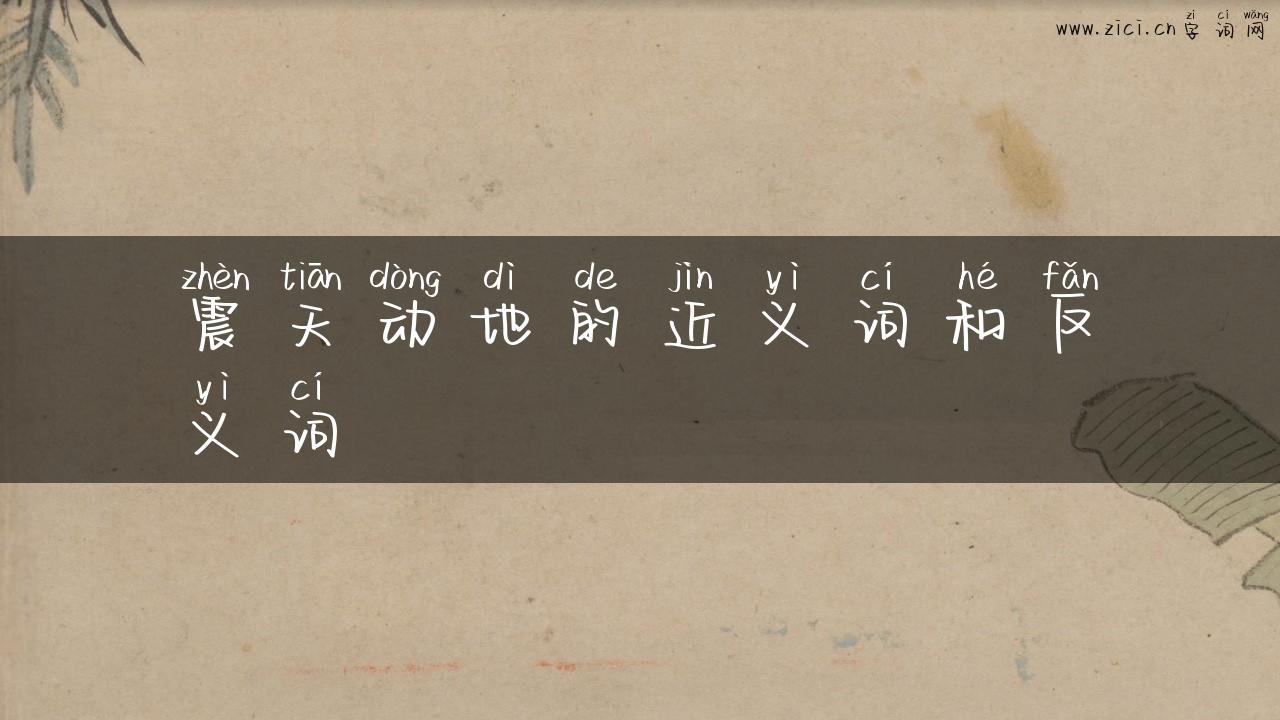 zì cí wǎng
www.zici.cn 字词网
zhèn tiān dòng dì de jìn yì cí hé fǎn
震天动地的近义词和反
yì cí
义词